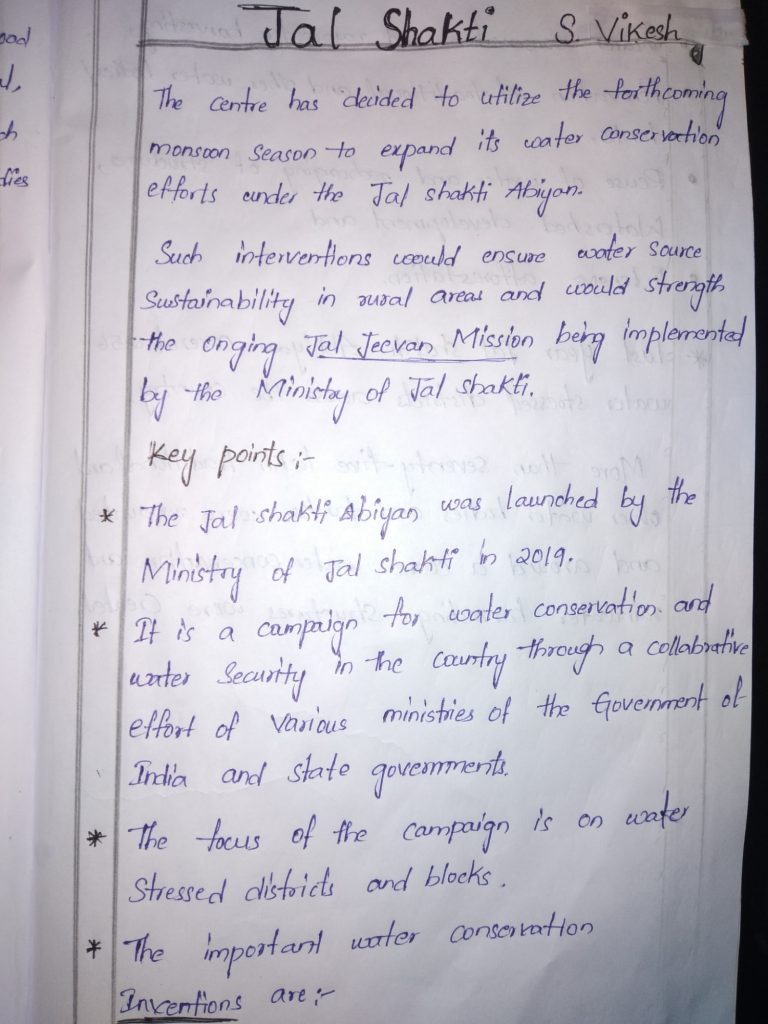 Jal Shakti S. Vikesh
The centre has decided to utilize the forthcoming
monsoon season to expand its water conservation
efforts under the Jal shakti Abiyan.
Such interventions would ensure water source
Sustainability in rural areas and would strength
the onging Jal Jeevan Mission being implemented
by the Ministry of Jal shakti.
Key points :-
* The Jal shakti Abiyan was launched by the
Ministry of Jal shakti in 2019.
* It is a campaign for water conservation and
water Security in the country through a collabrative
effort of Various ministries of the Government of
India and state governments.
* The focus of the campaign is on water
Stressed districts and blocks.
* The important water conservation
Inventions are :-